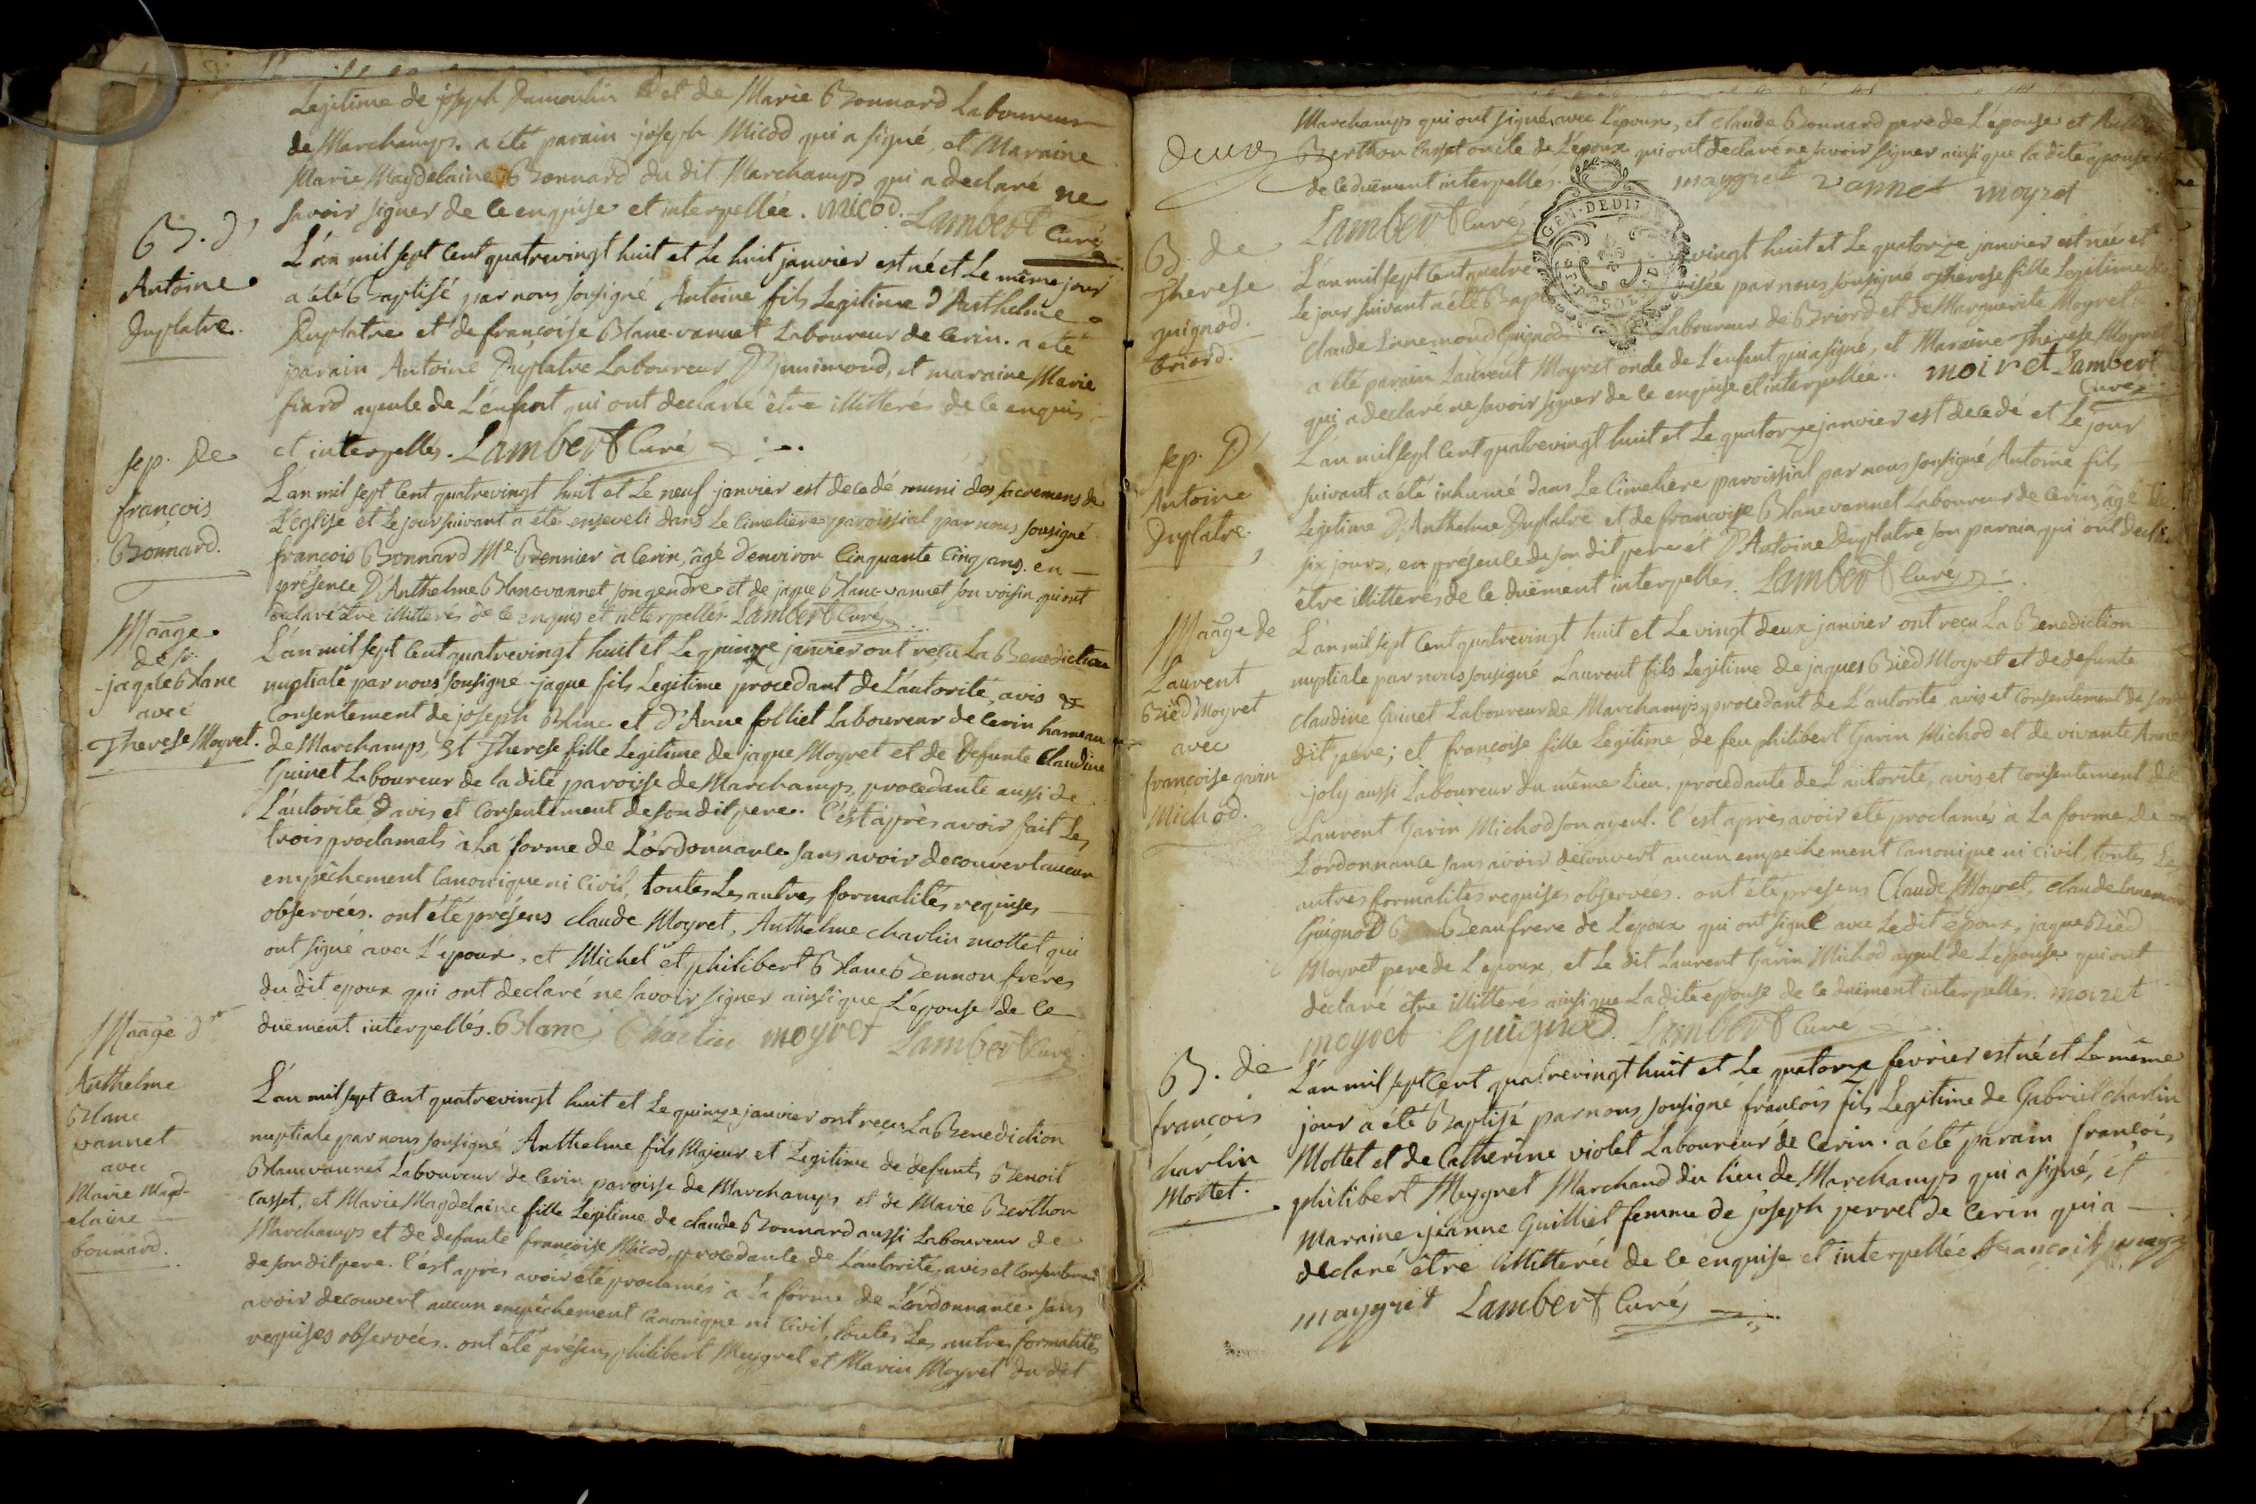 Legitime de joseph dumoulin et de Marie Bonnard Laboureur
de Marchamps. a été parain joseph Micod qui a signé, et Maraine
Marie Magdelaine Bonnard du dit Marchamps qui a declaré ne
savoir signer de ce enquise et interpellée. Micod. Lambert Curé
B. d'
Antoine
Duplatre.
L'an mil sept Cent quatrevingt huit et Le huit janvier est né et Le même jour
a été Baptisé par nous sousigné Antoine fils Legitime d'Anthelme
Duplatre et de françoise Blanc-vannet Laboureur de Cerin. a été
parain Antoine Duplatre Laboureur et maraine Marie
fiard ayeule de L'enfant qui ont declaré être illitteres de ce enquis
et interpellés. Lambert Curé
sep. de
françois
Bonnard.
L'an mil sept Cent quatrevingt huit et Le neuf janvier est decedé muni des sacremens de
L'eglise et Le jour suivant a été enseveli dans Le Cimetiere paroissial par nous sousigné
françois Bonnard Me. Grennier a Cerin, âgé d'environ Cinquante Cinq ans. en
présence D'Anthelme Blanc-vannet son gendre et de jaque Blanc-vannet son voisin qui ont
declaré être illitterés de ce enquis et interpellés Lambert Curé
Maage
de sr
jaque Blanc
avec
Therese Moyret.
L'an mil sept Cent quatrevingt huit et Le quinze janvier ont reçu La Benediction
nuptiale par nous sousigné jaque fils Legitime procedant de L'autorité, avis &
Consentement de joseph Blanc et d'Anne folliet Laboureur de Cerin hameau
de Marchamps, Et Therese fille Legitime de jaque Moyret et de Defunte Claudine
Guinet Laboureur de la dite paroisse de Marchamps, procedante aussi de
L'autorité avis et Consentement de son dit pere. C'est après avoir fait Les
trois proclamats à La forme de L'ordonnance sans avoir decouvert aucun
empêchement Canonique ni Civil, toutes Les autres formalités requises
observées. ont été présens claude Moyret, Anthelme charlin mottet qui
ont signé avec L'epoux, et Michel et philibert Blanc Bennon freres
du dit epoux qui ont declaré ne savoir signer ainsi que L'épouse de ce
duëment interpellés. Blanc Charlin moyret Lambert Curé
Maage d'
Anthelme
Blanc
vannet
avec
Marie Magd-
elaine
bonnard.
L'an mil sept Cent quatrevingt huit et Le quinze janvier ont reçu La Benediction
nuptiale par nous sousigné Anthelme fils Majeur et Legitime de defunts Benoit
Blanc vannet Laboureur de Cerin paroisse de Marchamps et de Marie Berthon
Casset, et Marie Magdelaine fille Legitime de claude Bonnard aussi Laboureur de
Marchamps et de defunte françoise Micod, procedante de L'autorité, avis et Consentement
de son dit pere. C'est après avoir été proclamés à La forme de L'ordonnance sans
avoir decouvert aucun empêchement Canonique ni Civil, toutes Les autres formalités
requises observées. ont été présens philibert Meygret et Marin Moyret du dit
deux
Marchamps qui ont signé avec L'epoux, et claude Bonnard pere de L'épouse et
Berthon Casset oncle de L'epoux qui ont declaré ne savoir signer ainsi que la dite épouse
de ce duëment interpellés. maygret vannet moyret
Lambert Curé
GEN. DEDIT
B. de
Therese
guignod.
briord.
L'an mil sept Cent quatrevingt huit et Le quatorze janvier est née et
Le jour suivant a été Baptisée par nous sousigné Therese fille Legitime de
Claude Lanemond Guignod Laboureur de Briord et de Marguerite Moyret
a été parain Laurent Moyret oncle de L'enfant qui a signé, et Maraine Therese Moyret
qui a declaré ne savoir signer de ce enquise et interpellée. moiret Lambert
Curé
sep. D'
Antoine
Duplatre.
L'an mil sept Cent quatrevingt huit et Le quatorze janvier est decedé et Le jour
suivant a été inhumé dans Le Cimetiere paroissial par nous sousigné Antoine fils
Legitime D'Anthelme Duplatre et de françoise Blanc vannet Laboureur de Cerin, âgé de
six jours, en présence de son dit pere et D'Antoine Duplatre son parain qui ont declaré
être illitterés de ce duëment interpellés. Lambert Curé
Maage de
Laurent
Bied Moyret
avec
françoise garin
Michod.
L'an mil sept Cent quatrevingt huit et Le vingt deux janvier ont reçu La Benediction
nuptiale par nous sousigné Laurent fils Legitime de jaques Bied Moyret et de defunte
Claudine Guinet Laboureur de Marchamps, procedant de L'autorité avis et Consentement de son
dit pere; et françoise fille Legitime de feu philibert Garin Michod et de vivante Anne
joly aussi Laboureur du même Lieu, procedante de L'autorité, avis et Consentement de
Laurent Garin Michod son ayeul. C'est après avoir été proclamés à La forme de
L'ordonnance sans avoir découvert aucun empêchement Canonique ni civil, toutes Les
autres formalités requises observées. ont été presens Claude Moyret, claude Lanemond
Guignod Beaufrere de L'epoux qui ont signé avec Ledit époux, jaque Bied
Moyret pere de L'epoux, et Le dit Laurent Garin Michod ayeul de L'épouse qui ont
declaré être illitterés ainsi que La dite epouse de ce duëment interpellés. moiret
moyret Guignod. Lambert Curé
B. de
françois
charlin
Mottet.
L'an mil sept Cent quatrevingt huit et Le quatorze fevrier est né et Le même
jour a été Baptisé par nous sousigné françois fils Legitime de Gabriel charlin
Mottet et de Catherine violet Laboureur de Cerin. a été parain françois
philibert Meygret Marchand du lieu de Marchamps qui a signé, et
Maraine jeanne Guilliet femme de joseph perret de Cerin qui a
declaré être illitterée de ce enquise et interpellée françois
maygret Lambert Curé